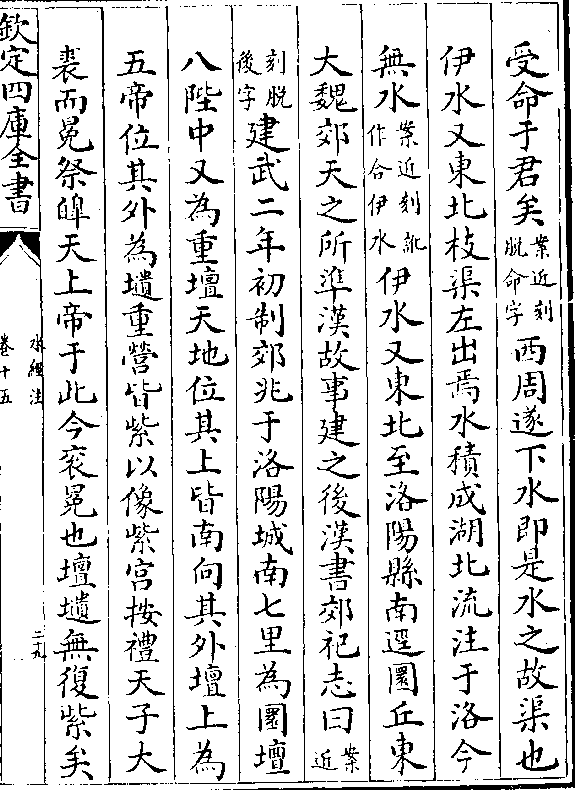 受命于君矣案近刻脱命字西周遂下水即是水之故渠也
伊水又東北枝渠左出焉水積成湖北流注于洛今
無水案近刻訛作合伊水伊水又東北至洛陽縣南逕圜丘東
大魏郊天之所準漢故事建之後漢書郊祀志曰案近
刻脱後字建武二年初制郊兆于洛陽城南七里為圜壇
八陛中又為重壇天地位其上皆南向其外壇上為
五帝位其外為壝重營皆紫以像紫宮按禮天子大
裘而冕祭皥天上帝于此今衮冕也壇壝無復紫矣
欽定四庫全書
水經注
卷十五
二九